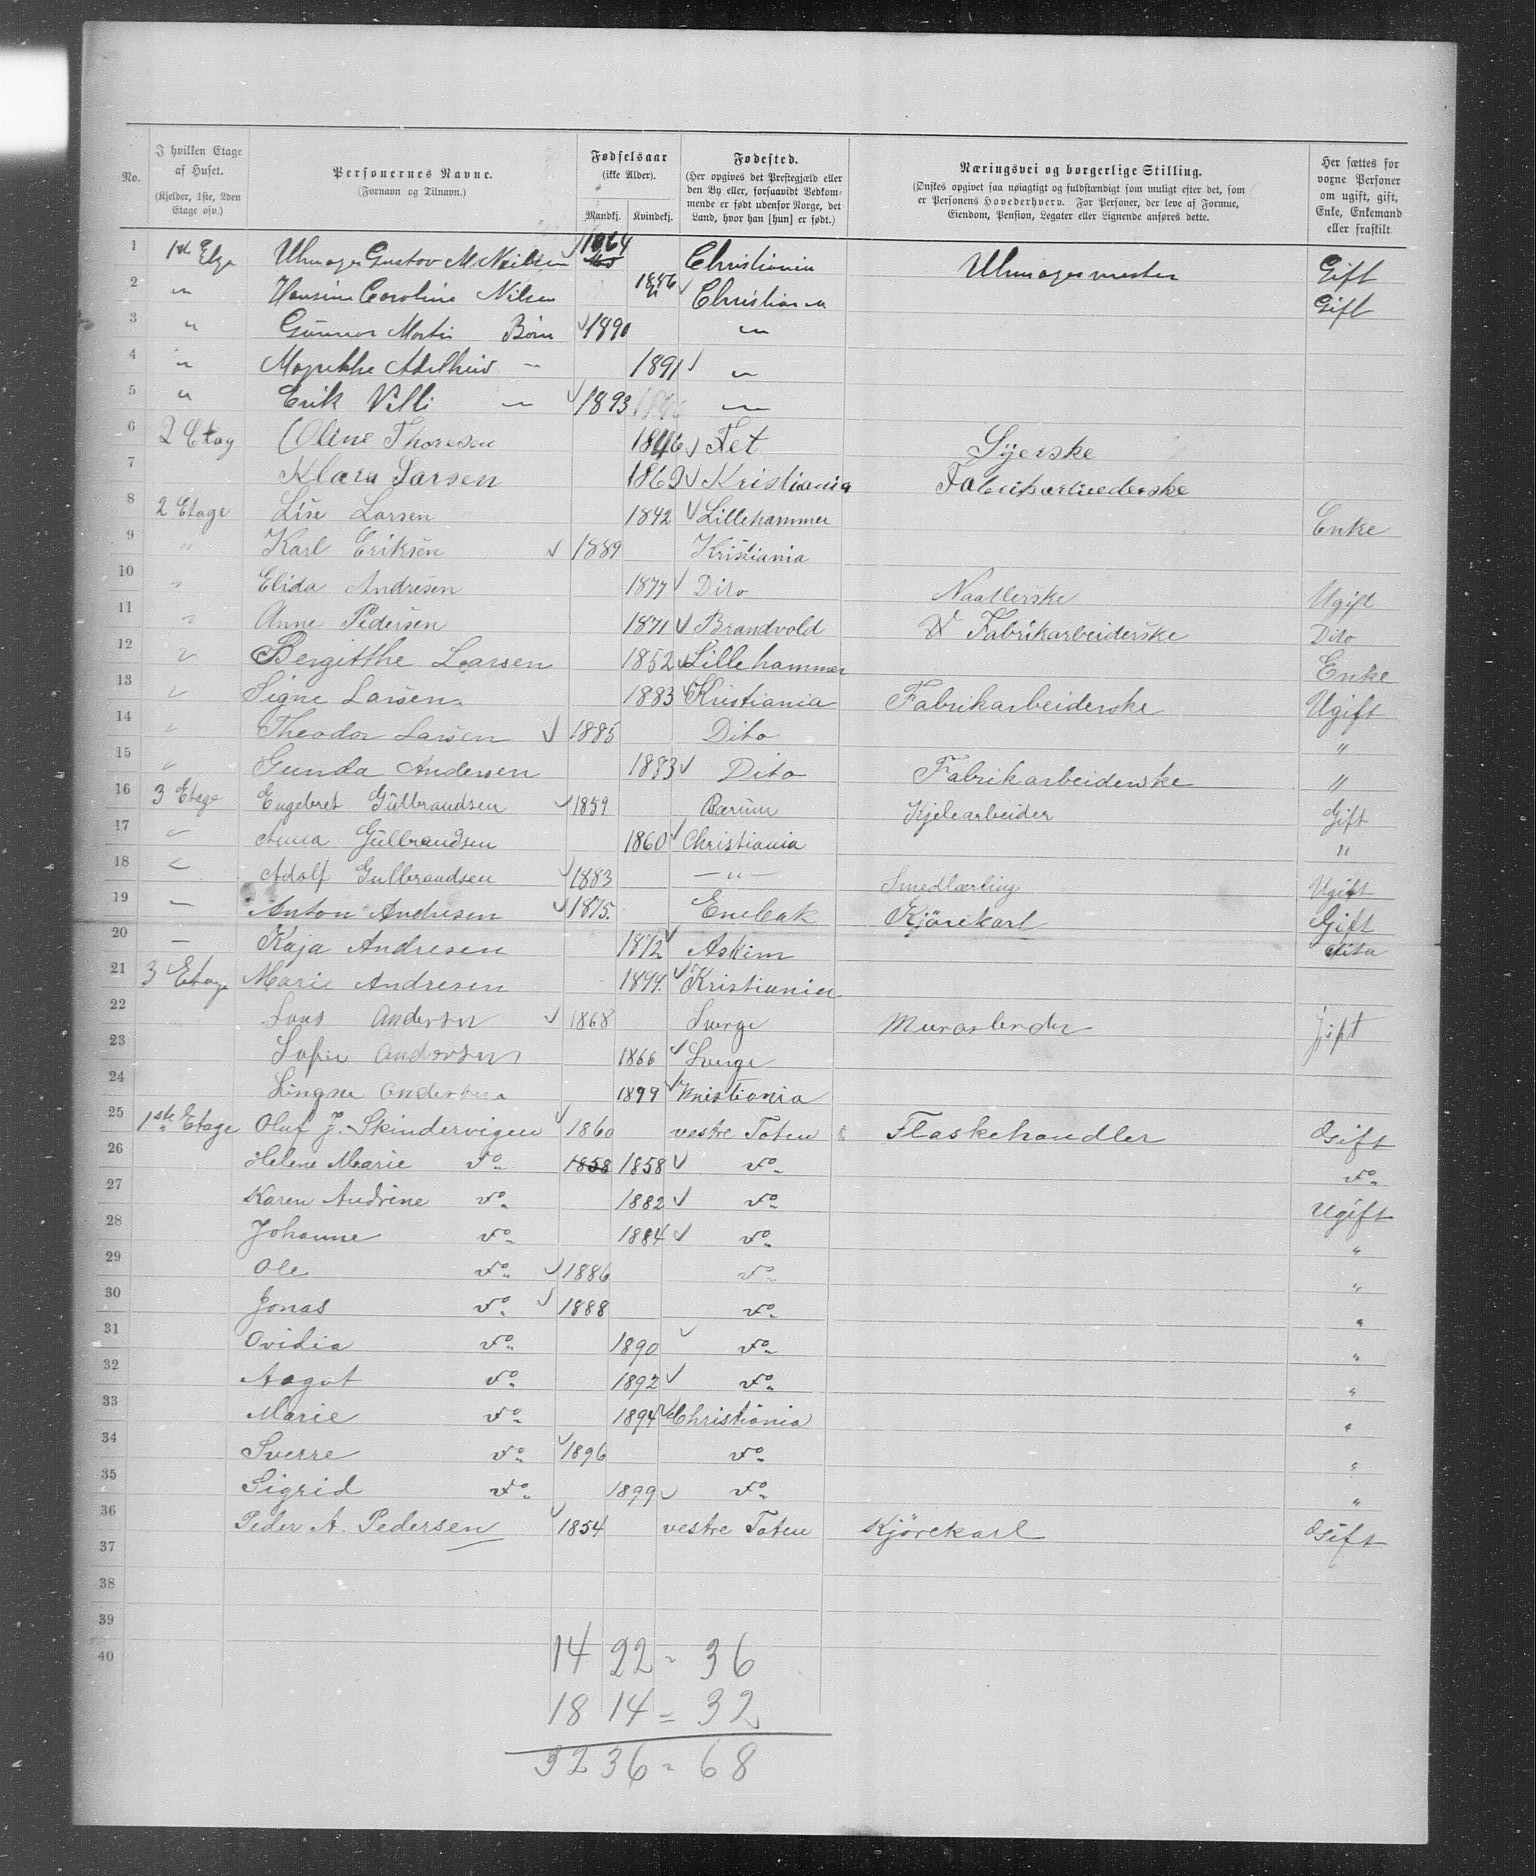 No.
I hvilken Etage af Huset. (Kjelder, 1ste, 2den Etage osv.)
Personernes Navne. (Fornavn og Tilnavn.)
Fødselsaar (ikke Alder). Mandkj. Kvindekj.
Fødested. (Her opgives det Prestegjæld eller den By eller, forsaavidt Vedkommende er født udenfor Norge, det Land, hvor han [hun] er født.)
Næringsvei og borgerlige Stilling. (Ønskes opgivet saa nøiagtigt og fuldstændigt som muligt efter det, som er Personens Hovederhverv. For Personer, der leve af Formue, Eiendom, Pension, Legater eller Lignende anføres dette.
Her sættes for voxne Personer om ugift, gift, Enke, Enkemand eller fraskilt.
1 1ste Etge Uhrmager Gustav M Neilsen 1864 Christiania Uhrmagermester Gift
2 " Hansine Caroline Nilsen 1886 Christiania Gift
3 " Gunnar Martin Børn 1890 "
4 " Magrethe Adelheid " 1891 "
5 " Erik Villi " 1893 "
6 2 Etag Oline Thoresen 1846 Fet Syerske
7 Klara Larsen 1869 Kristiania Fabrikarbiederske
8 2 Etage Lise Larsen 1842 Lillehammer Enke
9 " Karl Eriksen 1889 Kristiania
10 " Elida Andresen 1877 Dito Naatlerske Ugift
11 " Anne Pedersen 1871 Brandvold Fabrikarbeiderske Dito
12 " Bergitthe Larsen 1852 Lillehammer Enke
13 " Signe Larsen 1883 Kristiania Fabrikarbeiderske Ugift
14 " Theodor Larsen 1885 Dito "
15 " Gunda Andersen 1883 Dito Fabrikarbeiderske "
16 3 Etage Engebret Gulbrandsen 1859 Bærum Kjelearbeider Gift
17 " Anna Gulbrandsen 1860 Christiania "
18 " Adolf Gulbrandsen 1883 — " — Smedlærling Ugift
19 — Anton Andresen 1875. Enebak Kjörekarl Gift
20 — Kaja Andresen 1872 Askim dito
21 3 Etage Marie Andresen 1899. Kristiania
22 Lars Andersen 1868 Sverge Murarbeder Gift
23 Sofie Andersen 1866 Sverge
24 Andersen 1899 Kristiania
25 1ste Etage Oluf J. Skindervigen 1860 vestre Toten Flaskehandler Gift
26 Helene Marie do 1858 1858 do do
27 Karen Andrine do 1882 do Ugift
28 Johanne do 1884 do "
29 Ole do 1886 do "
30 Jonas do 1888 do "
31 Ovidia do 1890 do "
32 Aagot do 1892 do "
33 Marie do 1894 Christiania "
34 Sverre do 1896 do "
35 Sigrid do 1899 do "
36 Peder A. Pedersen 1854 vestre Toten Kjörekarl Gift
37
38
39
40
14 22 = 36
18 14 = 32
32 36 = 68